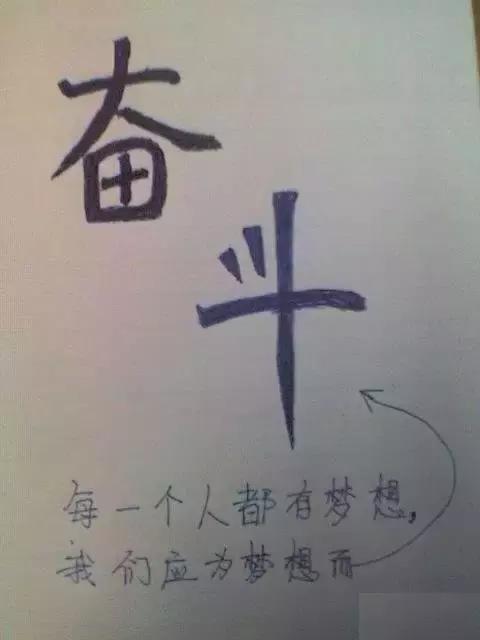 奋
斗
每一个人都有梦想,
我们应为梦想而